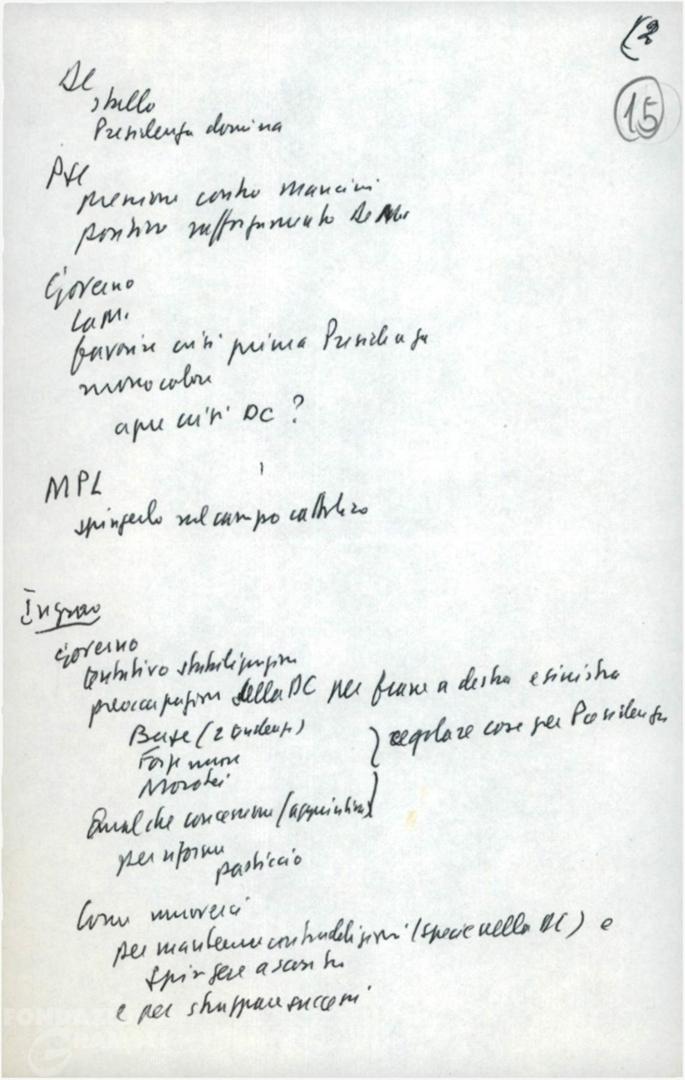 (2
15
DC
stallo
Presidenza domina
PSI
pressione contro Mancini
positivo rafforzamento De Ma
Governo
La M.
favorire crisi prima Presidenza
monocolore
apre crisi DC ?
MPL
spingerlo nel campo cattolico
Ingrao
Governo
tentativo stabilizzazione
preoccupazione della DC per frane a destra e sinistra
Base (2 tendenze)
Forze nuove
Morotei
regolare cose per Presidenza
Qualche concessione (aggiuntiva)
per riforme
pasticcio
Come muoverci
per mantenere contraddizioni (specie nella DC) e
spingere a sinistra
e per strappare successi
FONDAZIONE
GRAMSCI